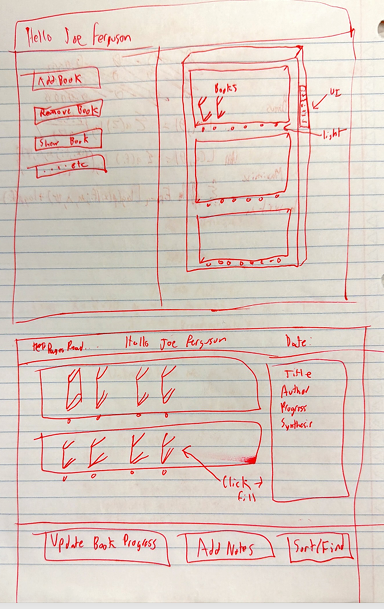 Hello Joe Ferguson
Add Book
Remove Book
Show Book
...etc
Books
UI
light
Pages Read
Hello Joe Ferguson
Date:
Title
Author
Progress
Synthesis
Click →
fill
Update Book Progress
Add Notes
Sort/Find